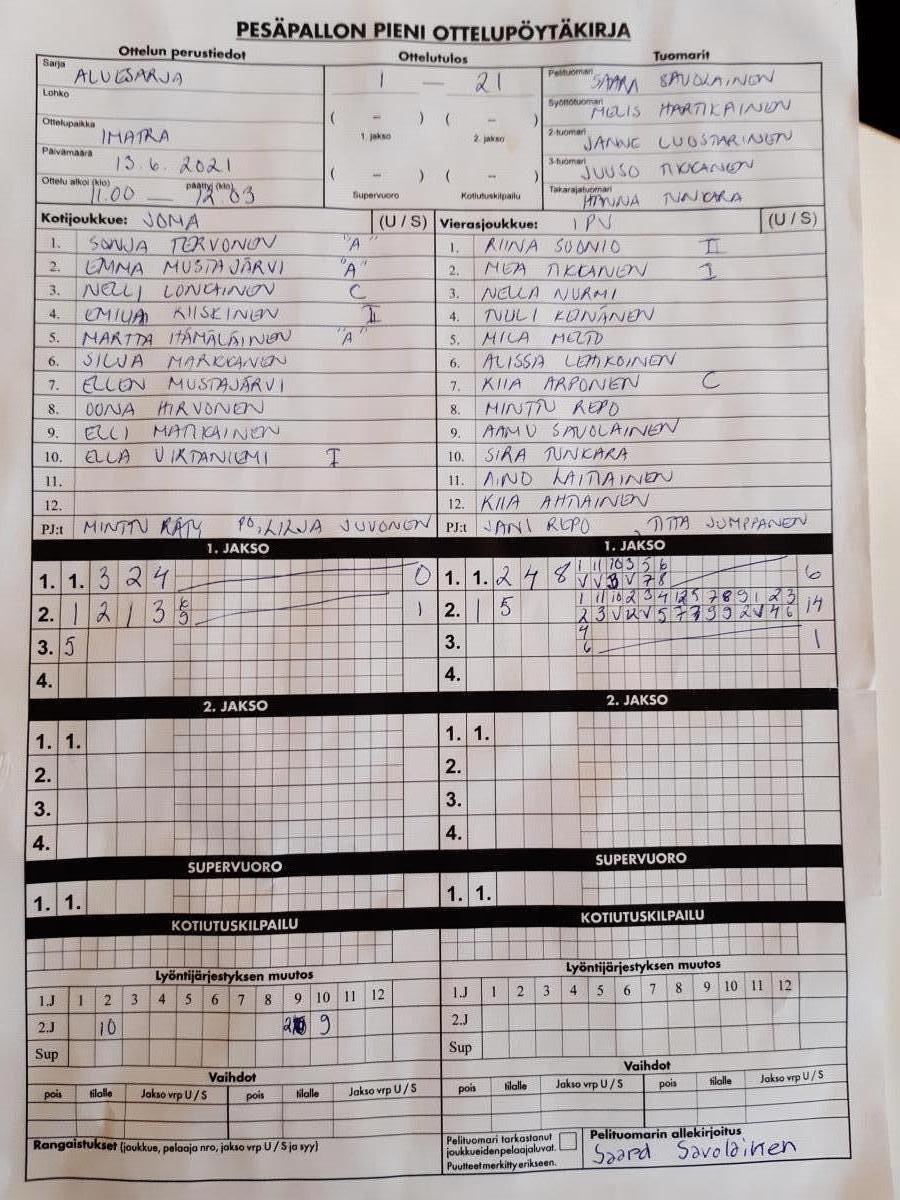 PESÄPALLON PIENI OTTELUPÖYTÄKIRJA
Ottelun perustiedot Ottelutulos Tuomarit
Sarja ALUESARJA 1 — 21 Pelituomari SAARA SAVOLAINEN
Lohko ( – ) ( – ) Syöttötuomari HARTIKAINEN
Ottelupaikka IMATRA 1. jakso 2. jakso 2-tuomari JANNE LUOSTARINEN
Päivämäärä 13.6.2021 ( – ) ( – ) 3-tuomari JUUSO TIKKANEN
Ottelu alkoi (klo) 11.00 — päättyi (klo) 12.03 Supervuoro Kotiutuskilpailu Takarajatuomari HANNA TUNKARA
Kotijoukkue: JOMA (U / S) Vierasjoukkue: IPV (U / S)
1. SONJA TERVONEN "A" 1. RIINA SUONIO II
2. EMMA MUSTAJÄRVI "A" 2. MEA TIKKANEN I
3. NELLI LONKAINEN C 3. NELLA NURMI
4. EMILIA KIISKINEN II 4. TUULI KONÄNEN
5. MARTTA HÄMÄLÄINEN "A" 5. MILA
6. SILJA MARKKANEN 6. ALISSA LEHIKOINEN
7. ELLEN MUSTAJÄRVI 7. KIIA ARPONEN C
8. OONA HIRVONEN 8. MINTTU REPO
9. ELLI MATIKAINEN 9. AAMU SAVOLAINEN
10. ELLA VIRTANIEMI I 10. SIRA TUNKARA
11. 11. AINO LAITIAINEN
12. 12. KIIA AHTIAINEN
PJ:t MINTTU RÄTY PO, LILJA JUVONEN PJ:t JANI REPO , TITTA JUMPPANEN
1. JAKSO 1. JAKSO
1. 1. 3 2 4 0 1. 1. 2 4 8 1 11 10 3 5 6 6
V V 3 V 7 8
2. 1 2 1 3 6 1 2. 1 5 1 11 10 2 3 4 12 5 7 8 9 1 2 3 14
9 2 3 V V V 5 7 7 9 9 2 V 4 6
3. 5 3. 4 1
6
4. 4.
2. JAKSO 2. JAKSO
1. 1. 1. 1.
2. 2.
3. 3.
4. 4.
SUPERVUORO SUPERVUORO
1. 1. 1. 1.
KOTIUTUSKILPAILU KOTIUTUSKILPAILU
Lyöntijärjestyksen muutos Lyöntijärjestyksen muutos
1.J 1 2 3 4 5 6 7 8 9 10 11 12 1.J 1 2 3 4 5 6 7 8 9 10 11 12
2.J 10 2 9 2.J
Sup Sup
Vaihdot Vaihdot
pois tilalle Jakso vrp U / S pois tilalle Jakso vrp U / S pois tilalle Jakso vrp U / S pois tilalle Jakso vrp U / S
Rangaistukset (joukkue, pelaaja nro, jakso vrp U / S ja syy) Pelituomari tarkastanut joukkueidenpelaajaluvat. Pelituomarin allekirjoitus
Puutteet merkitty erikseen. Saara Savolainen